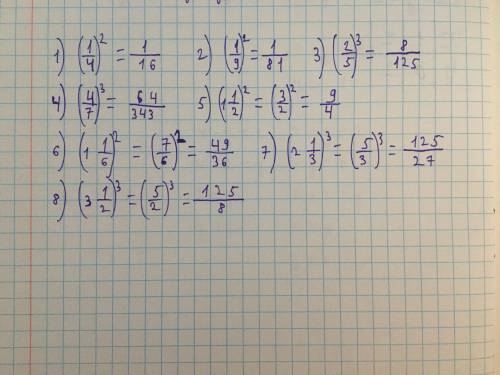 1) (1/4)² = 1/16 2) (1/9)² = 1/81 3) (2/5)³ = 8/125
4) (4/7)³ = 64/343 5) (1 1/2)² = (3/2)² = 9/4
6) (1 1/6)² = (7/6)² = 49/36 7) (2 1/3)³ = (5/3)³ = 125/27
8) (3 1/2)³ = (5/2)³ = 125/8